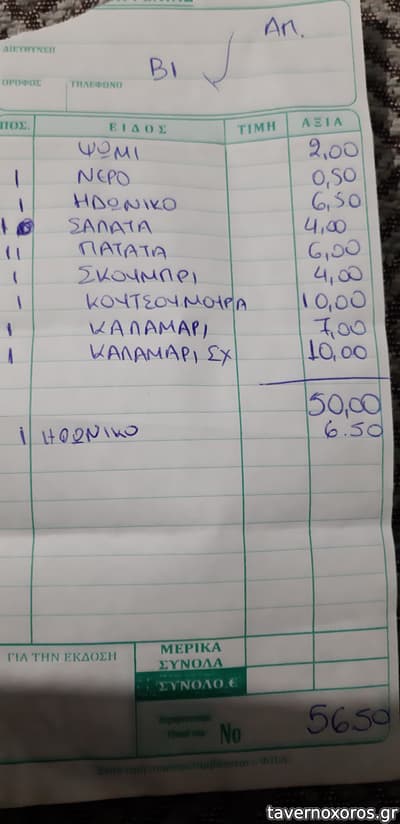 ΔΙΕΥΘΥΝΣΗ
ΑΠ.
Β1
ΟΡΟΦΟΣ ΤΗΛΕΦΩΝΟ
ΠΟΣ. ΕΙΔΟΣ ΤΙΜΗ ΑΞΙΑ
ΨΩΜΙ 2,00
1 ΝΕΡΟ 0,50
1 ΗΔΩΝΙΚΟ 6,50
1 ΣΑΛΑΤΑ 4,00
11 ΠΑΤΑΤΑ 6,00
1 ΣΚΟΥΜΠΡΙ 4,00
1 ΚΟΥΤΣΟΥΜΟΥΡΑ 10,00
1 ΚΑΛΑΜΑΡΙ 7,00
1 ΚΑΛΑΜΑΡΙ ΣΧ 10,00
50,00
1 ΗΔΩΝΙΚΟ 6.50
ΓΙΑ ΤΗΝ ΕΚΔΟΣΗ
ΜΕΡΙΚΑ
ΣΥΝΟΛΑ
ΣΥΝΟΛΟ €
Νο 5650
tavernoxoros.gr